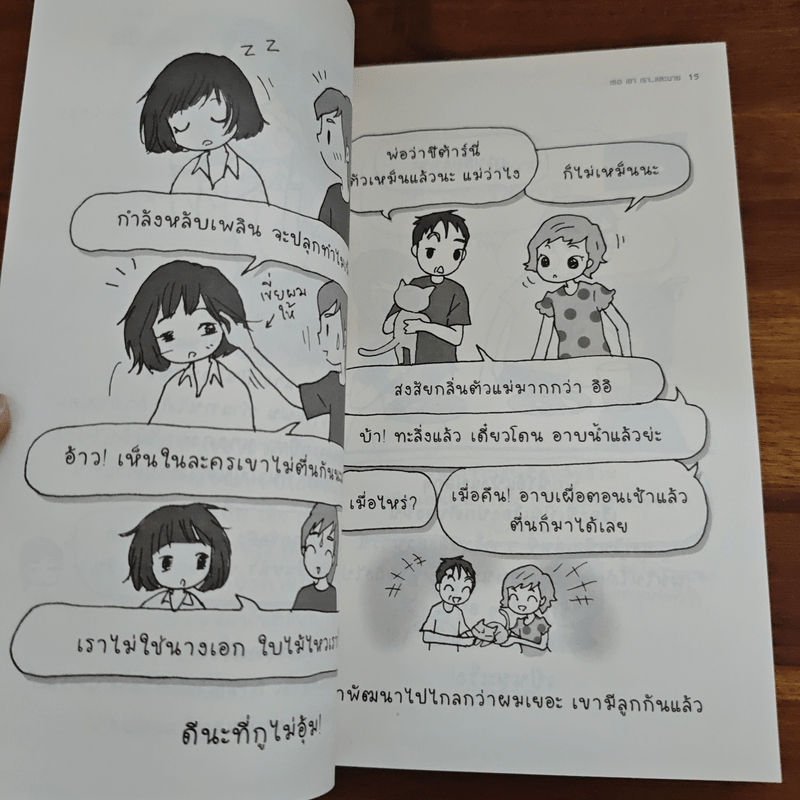 Z Z
กำลังหลับเพลิน จะปลุกทำไม
เขี่ยผม
ให้
อ้าว! เห็นในละครเขาไม่ตื่นกัน
เราไม่ใช่นางเอก ใบไม้ไหวเรา
ดีนะที่กูไม่อุ้ม!
เธอ เขา เรา...และนาย 15
พ่อว่าชีต้าร์นี่
ตัวเหม็นแล้วนะ แม่ว่าไง
ก็ไม่เหม็นนะ
สงสัยกลิ่นตัวแม่มากกว่า อิอิ
บ้า! ทะลึ่งแล้ว เดี๋ยวโดน อาบน้ำแล้วย่ะ
เมื่อไหร่?
เมื่อคืน! อาบเผื่อตอนเช้าแล้ว
ตื่นก็มาได้เลย
พัฒนาไปไกลกว่าผมเยอะ เขามีลูกกันแล้ว